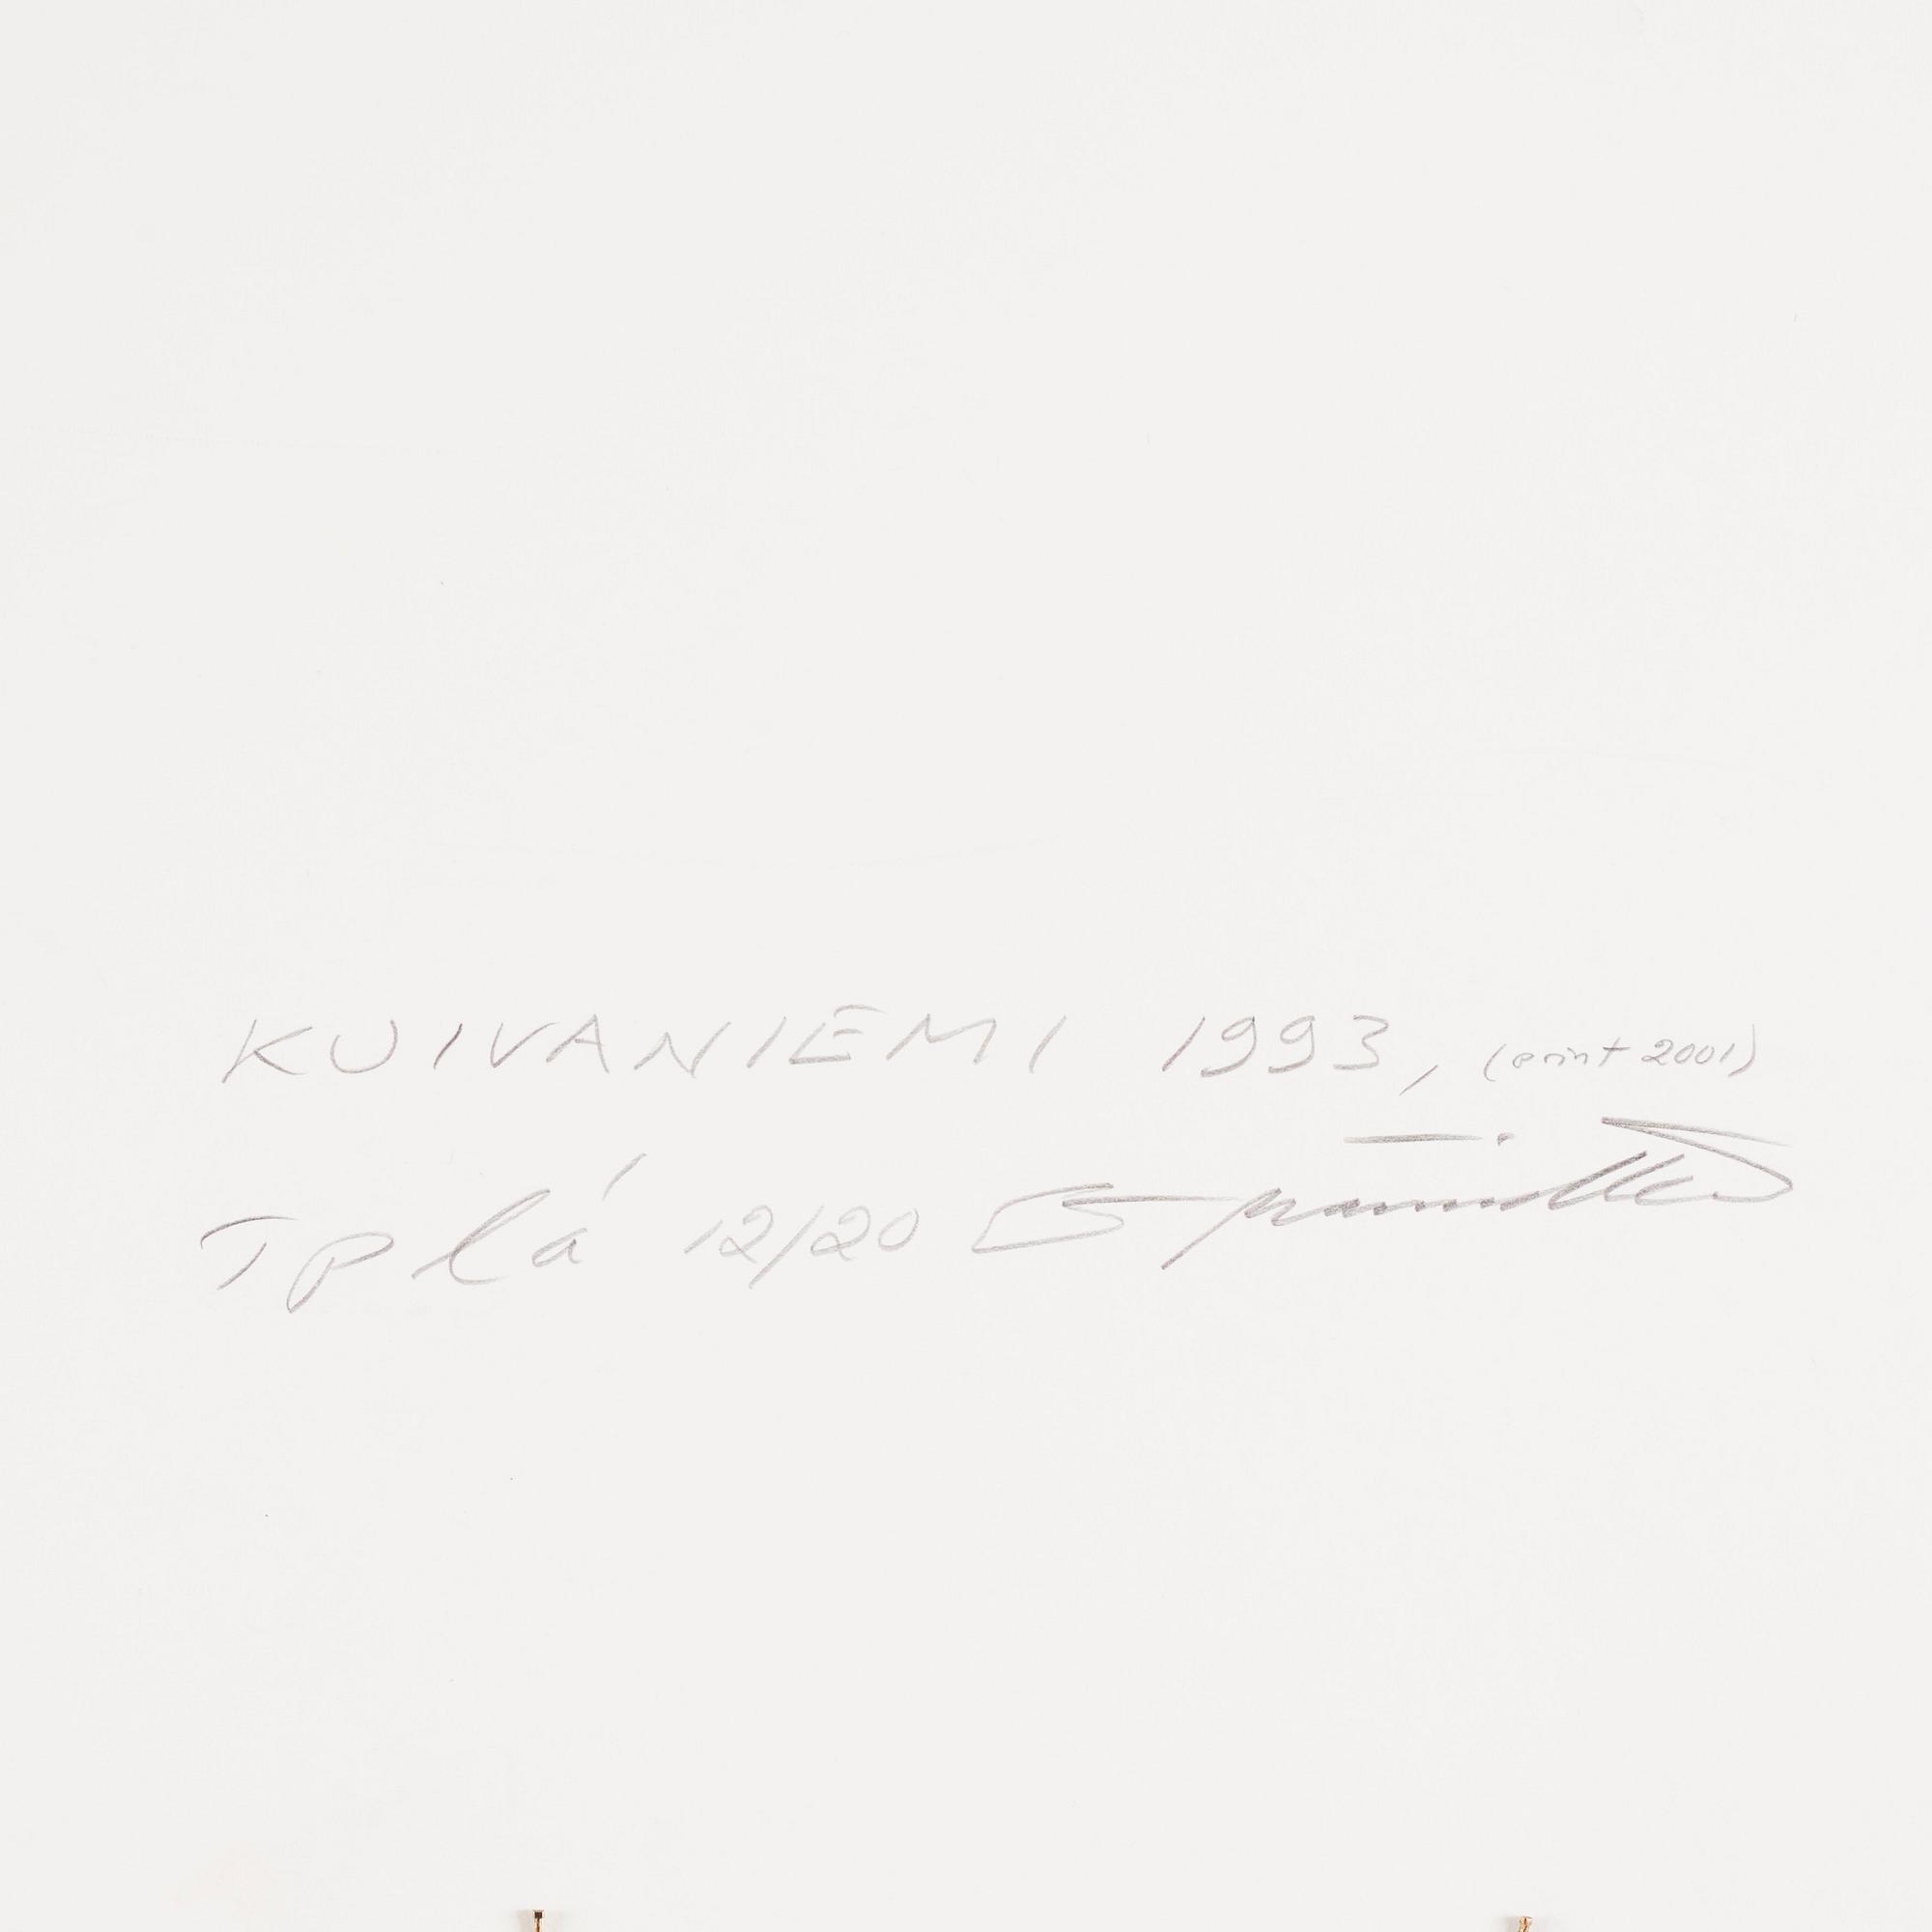 KUIVANIEMI 1993, (print 2001)
TP lá 12/20